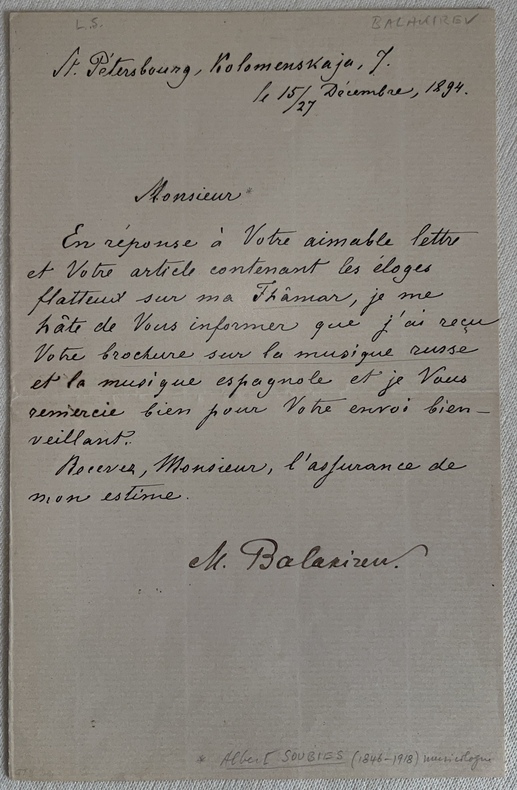 L.S.
BALAKIREV
St. Pétersbourg, Kolomenskaja, 7.
le 15/27 Décembre, 1894.
Monsieur *
En réponse à Votre aimable lettre
et Votre article contenant les éloges
flatteux sur ma Thâmar, je me
hâte de Vous informer que j'ai reçu
Votre brochure sur la musique russe
et la musique espagnole et je Vous
remercie bien pour Votre envoi bien-
veillant.
Recevez, Monsieur, l'assurance de
mon estime.
M. Balakirew.
* Albert SOUBIES (1846-1918) musicologue